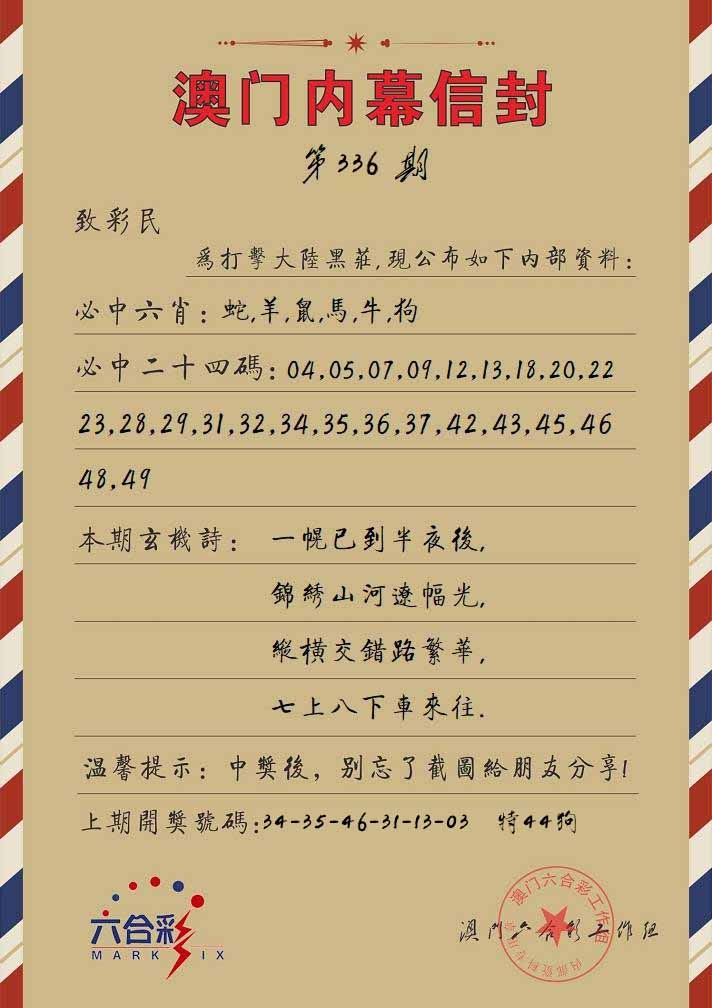 澳门内幕信封
第336期
致彩民
爲打擊大陸黑莊,現公布如下内部資料:
必中六肖: 蛇,羊,鼠,馬,牛,狗
必中二十四碼: 04,05,07,09,12,13,18,20,22
23,28,29,31,32,34,35,36,37,42,43,45,46
48,49
本期玄機詩: 一幌已到半夜後,
錦綉山河遼幅光,
縱横交錯路繁華,
七上八下車來往.
温馨提示: 中獎後, 别忘了截圖給朋友分享!
上期開獎號碼:34-35-46-31-13-03 特44狗
六合彩
MARK SIX
澳门六合彩工作组
澳门六合彩工作组
内部资料专用章